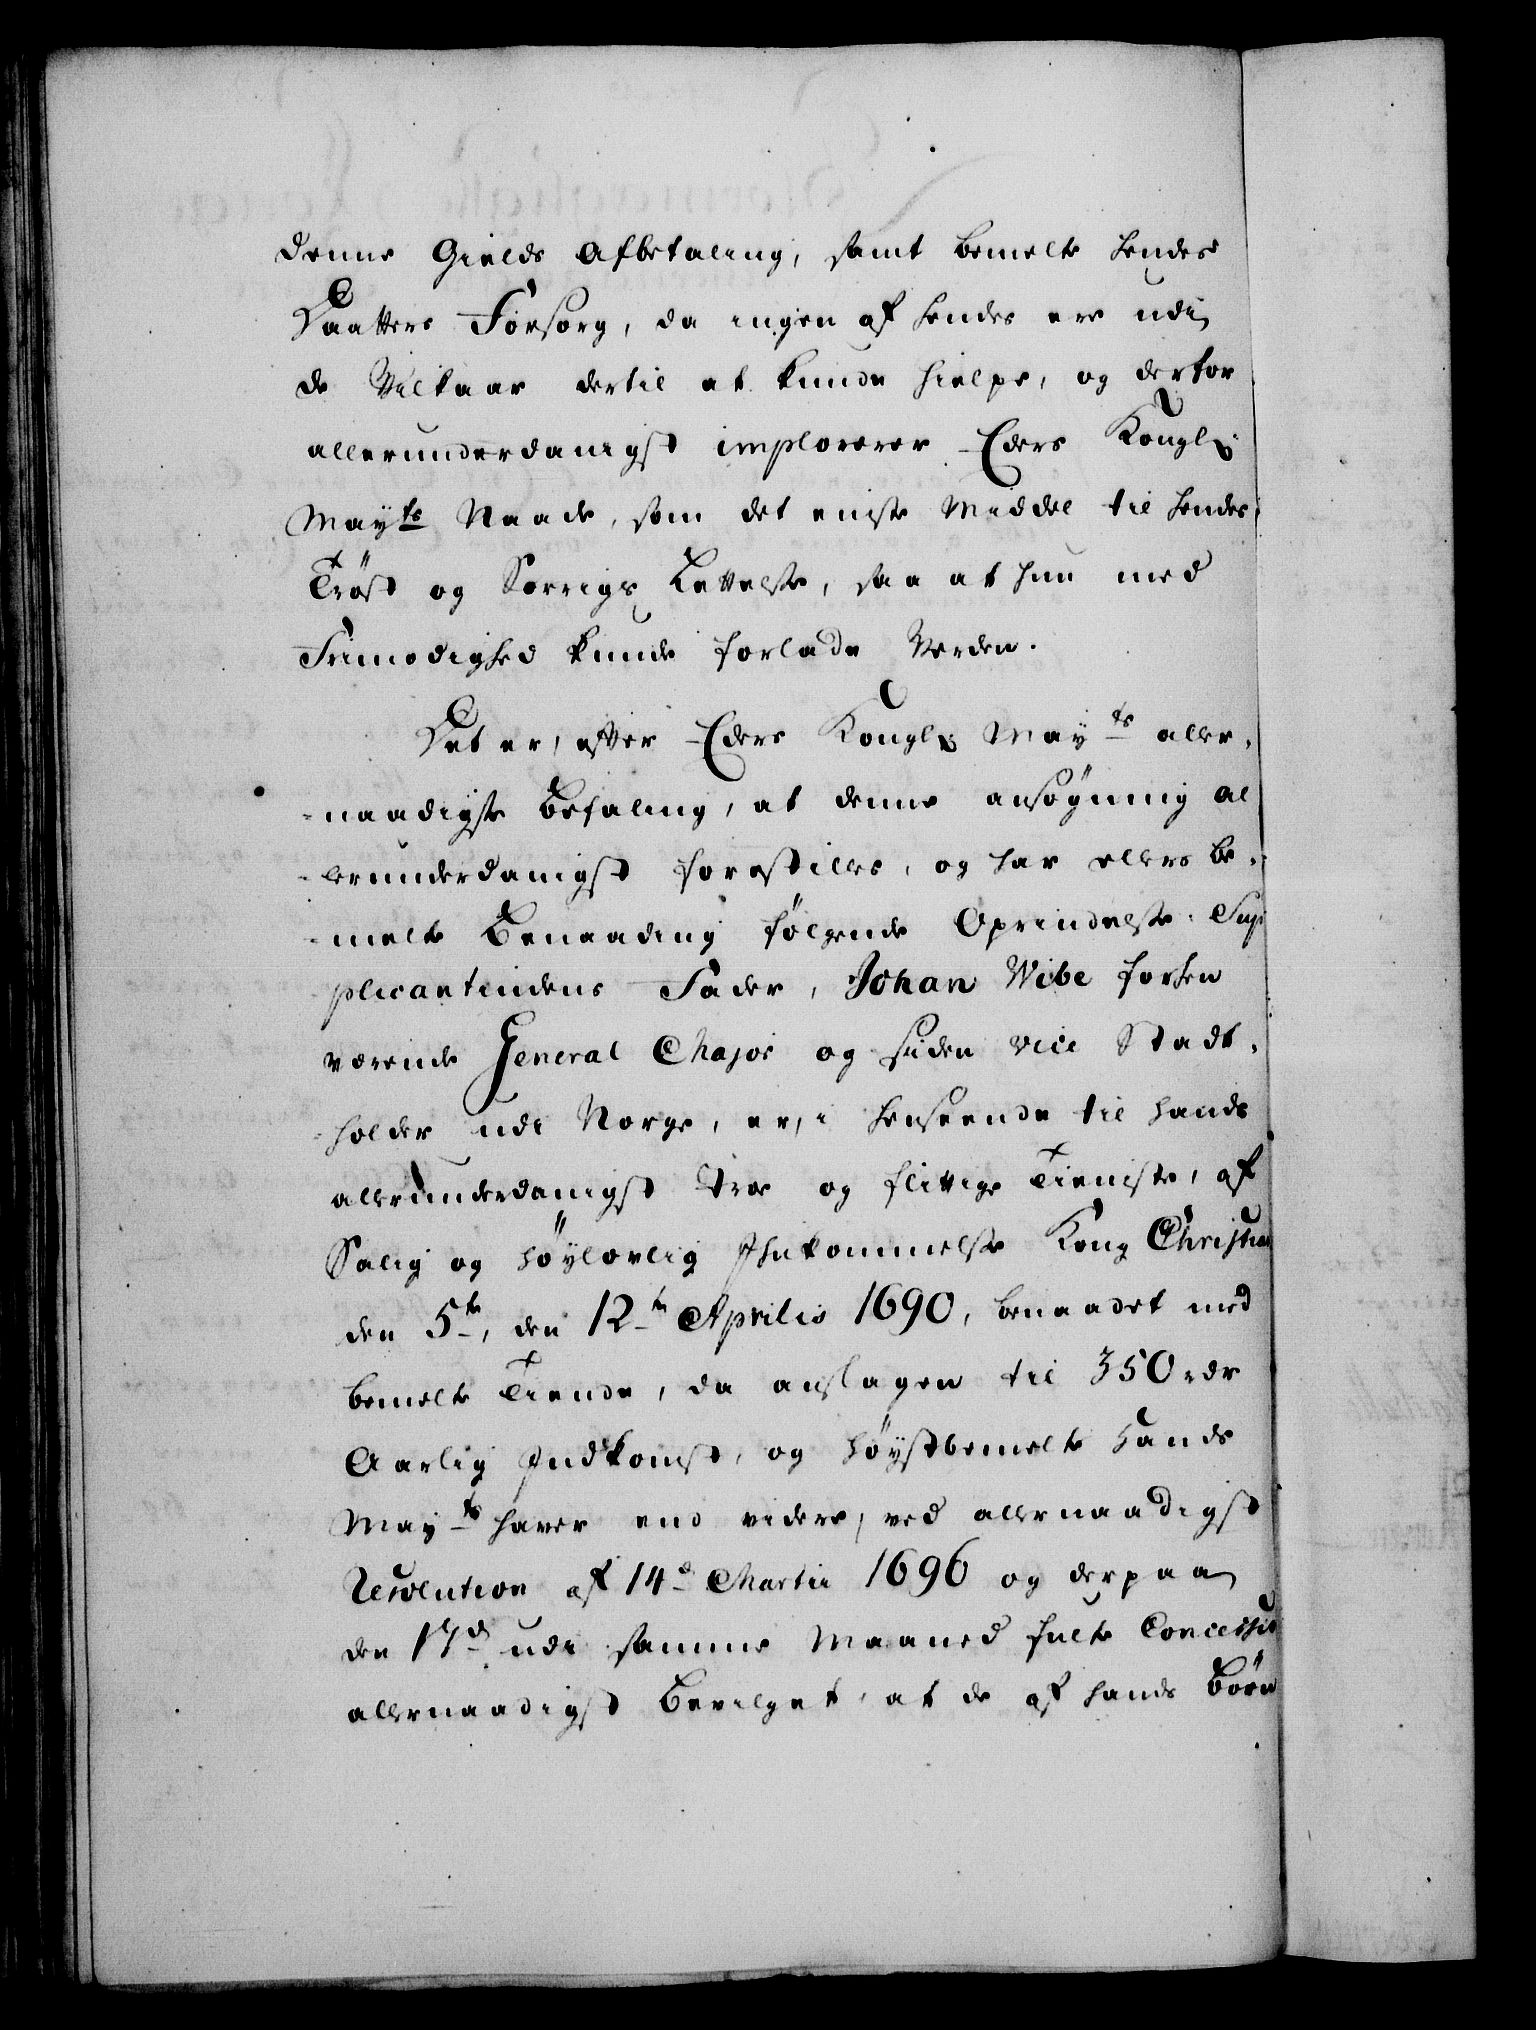 denne Gields Afbetaling, samt bemelte hendes
Daatters Forsorg, da ingen af hendes ere udi
de Vilkaar dertil at kunde hielpe, og derfor
allerunderdanigst implorerer Eders Kongl.
Mayts Naade, som det eniste Middel til hendes
Trøst og Sorrigs Lettelse, saa at hun med
Frimodighed kunde forlade Verden.
Det er, efter Eders Kongl. Mayts aller-
-naadigste Befaling, at denne ansøgning al
-lerunderdanigst forestilles, og har ellers be-
-melte Benaading følgende Oprindelse: Sup
plicantindens Fader, Johan Wibe forhen
værende General Major og siden Vice Stadt-
-holder udi Norge, er, i henseende til hands
allerunderdanigst troe og flittige Tieniste, af
Salig og høylovlig Ihukommelse Kong Christian
den 5te, den 12te Aprilis 1690, benaadet med
bemelte Tiende, da anslagen til 350 rdr
Aarlig Indkomst, og høystbemelte Hands
Mayts haver end videre, ved allernaadigst
Resolution af 14de Martii 1696 og derpaa
den 17de udi samme Maaned fulte Concession
allernaadigst bevilget, at de af hands Børn